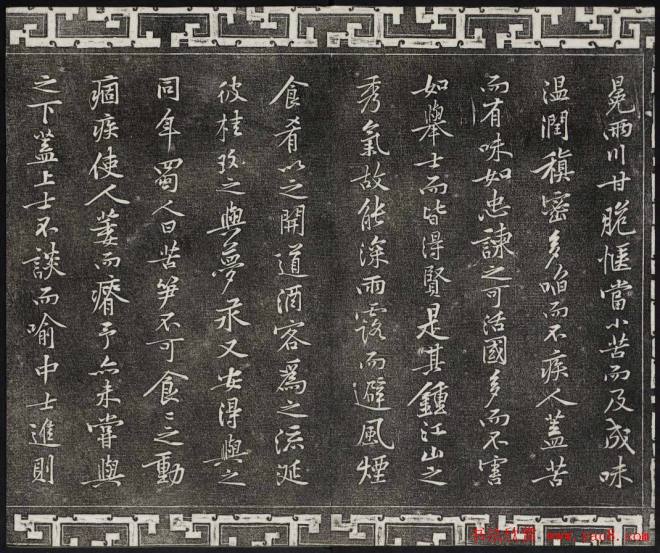 冕両川甘脆惬當小苦而及成味
温潤稹密多啗而不疾人蓋苦
而有味如忠諫之可活國多而不害
如舉士而皆得賢是其鍾江山之
秀氣故能深雨露而避風煙
食肴以之開道酒客為之流涎
彼桂玫之與夢永又安得與之
同年蜀人曰苦笋不可食〻之動
痼疾使人萎而瘠予亦未嘗與
之下蓋上士不談而喻中士進則
www.yac8.com